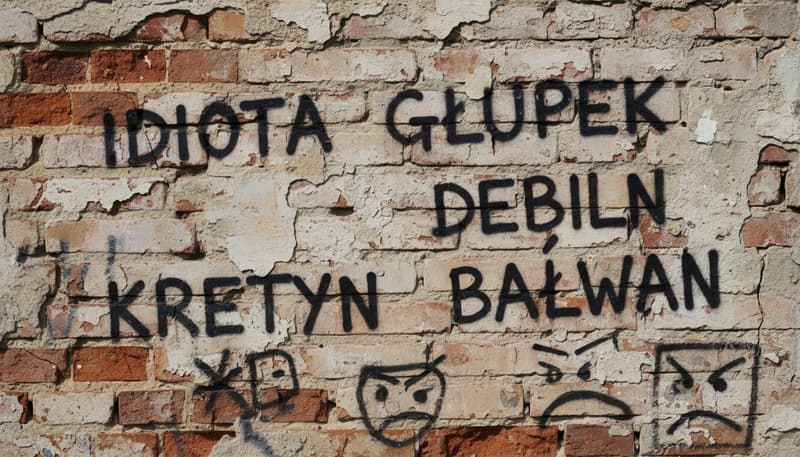 IDIOTA GŁUPEK
DEBILN
KRETYN BAŁWAN